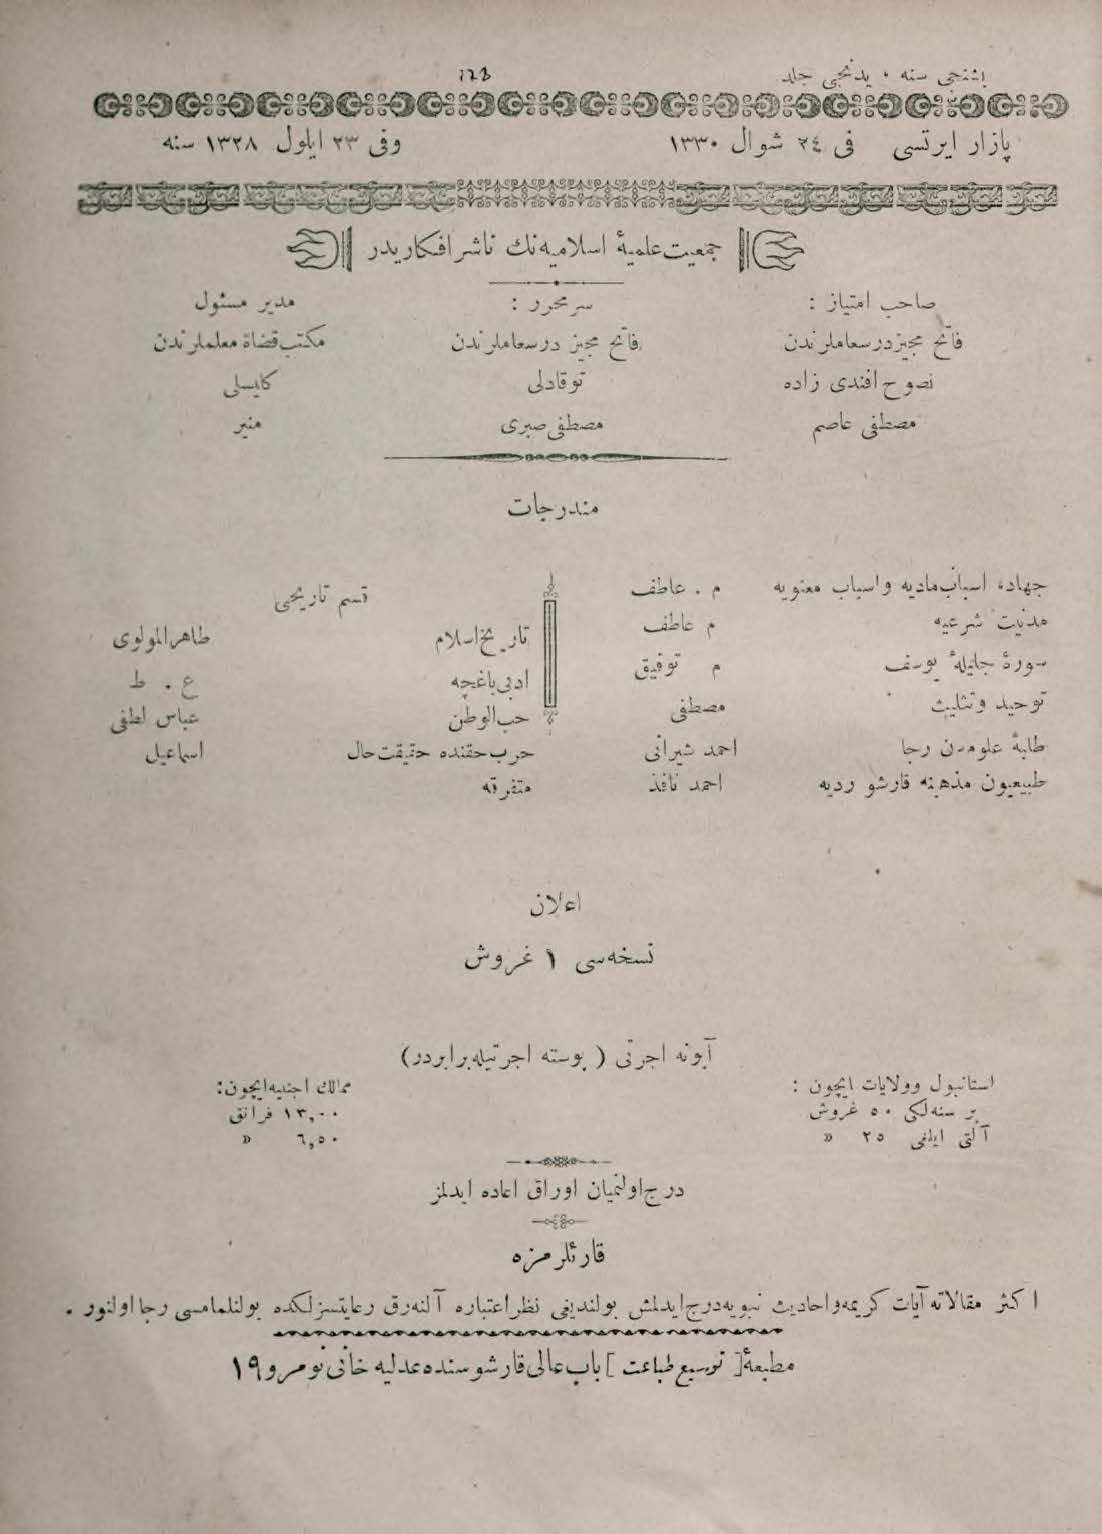 بشنجی سنه ٠ یدنجی جلد
١٢٣
پازار ایرتسی فی ٢٤ شوال ١٣٣٠ وفی ٢٣ ایلول ١٣٢٨ سنه
جمعیت علمیهٔ اسلامیه نك ناشر افكاریدر
صاحب امتیاز :
فاتح مجیز درسعاملرندن
نصوح افندی زاده
مصطفی عاصم
سر محرر :
فاتح مجیز درسعاملرندن
توقادلی
مصطفی صبری
مدیر مسئول
مكتب قضاة معلملرندن
كایسلی
منیر
مندرجات
جهاد، اسباب مادیه واسباب معنویه م . عاطف
مدنیت شرعیه م عاطف
سورهٔ جلیلهٔ یوسف م توفیق
توحید وتثلیث مصطفی
طلبهٔ علومدن رجا احمد شیرانی
طبیعیون مذهبنه قارشو ردیه احمد نافذ
قسم تاریخی
تاریخ اسلام طاهر المولوی
ادبی باغچه ع . ط
حب الوطن عباس لطفی
حرب حقنده حقیقت حال اسماعیل
متفرقه
اعلان
نسخه سی ١ غروش
آبونه اجرتی ( پوسته اجرتیله برابردر)
استانبول وولایات ایچون :
بر سنه لكی ٥٠ غروش
آلتی ایلغی ٢٥ »
ممالك اجنبیه ایچون :
١٣,٠٠ فرانق
٦,٥٠ »
درج اولنمیان اوراق اعاده ایدلمز
قارئلرمزه
اكثر مقالاته آیات كریمه واحادیث نبویه درج ایدلمش بولندیغی نظر اعتباره آلنه رق رعایتسزلكده بولنلمامسی رجا اولنور .
مطبعهٔ [ توسیع طباعت ] باب عالی قارشوسنده عدلیه خانی نومرو ١٩